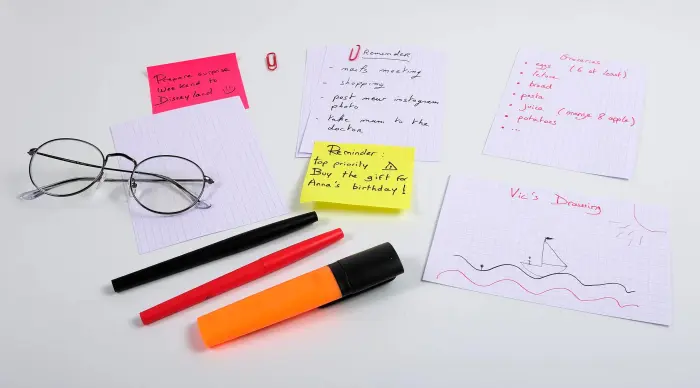 Prepare surprise
weekend to
Disneyland
Reminders
- meeting
- shopping
- post new instagram
photo
- take mum to the
doctor
Reminder:
top priority
Buy the gift for
Anna's birthday!
Groceries
• eggs (6 at least)
• letuce
• bread
• pasta
• juice (orange & apple)
• potatoes
• ...
Vic's Drawing